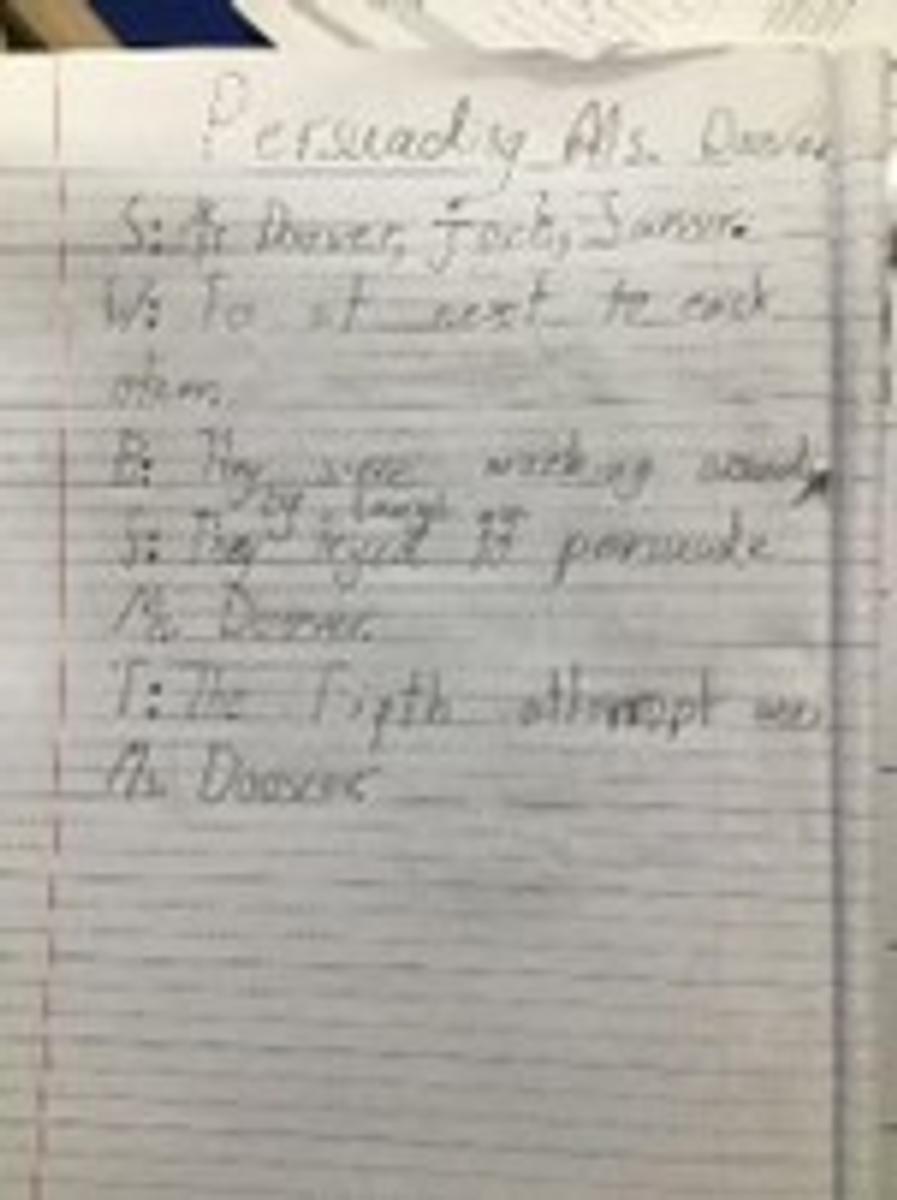 Persuading Ms. Doover
S: Ms Doover, Jack,
W: To sit next to each
other.
B: They were working
S: They tryed to persuade
Ms. Doover.
T: The Fifth attempt was
Ms. Doover